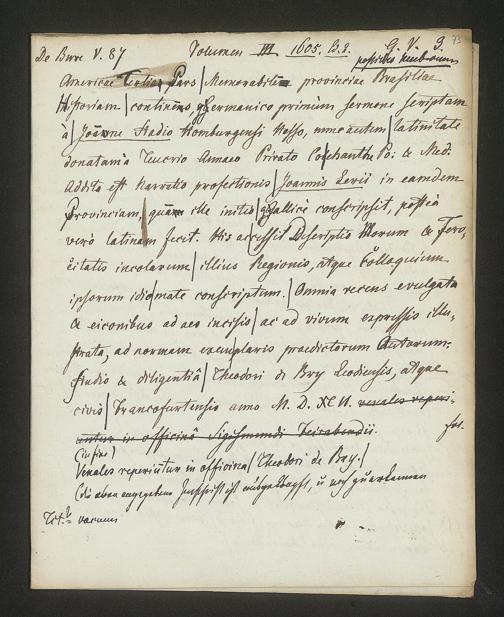 De Bure V. 87 Volumen III 1605. B. 2. G. V. 3. 73
Americae Tertia Pars | Memorabilem provinciae Brasiliae
Historiam | continens, germanico primùm sermone scriptam
à | Joanne Stadio Homburgensi Hesso, nunc autem | latinitate
donatam à Teucrio Annaeo Privato Colchanthe Po: & Med:
Addita est Narratio profectionis | Joannis Lerii in eamdem
Provinciam, quam ille initio | gallicè conscripsit, posteà
verò latinam fecit. His accessit Descriptio Morum & Fero,
citatis incolarum | illius Regionis, atque Colloquium
ipsorum idiomate conscriptum. | Omnia recens evulgata
& eiconibus ad aes incisis | ac ad vivum expressis illu,
strata, ad normam exemplaris praedictorum Autorum:
studio & diligentiâ | Theodori de Bry Leodiensis, atque
civis | Francofurtensis anno M. D. XCII. venales reperi-
untur in officinâ Sigismundi Feirabendii. fol.
(in fine)
Venales reperiuntur in officina | Theodori de Bry. |
Tit. vacuum